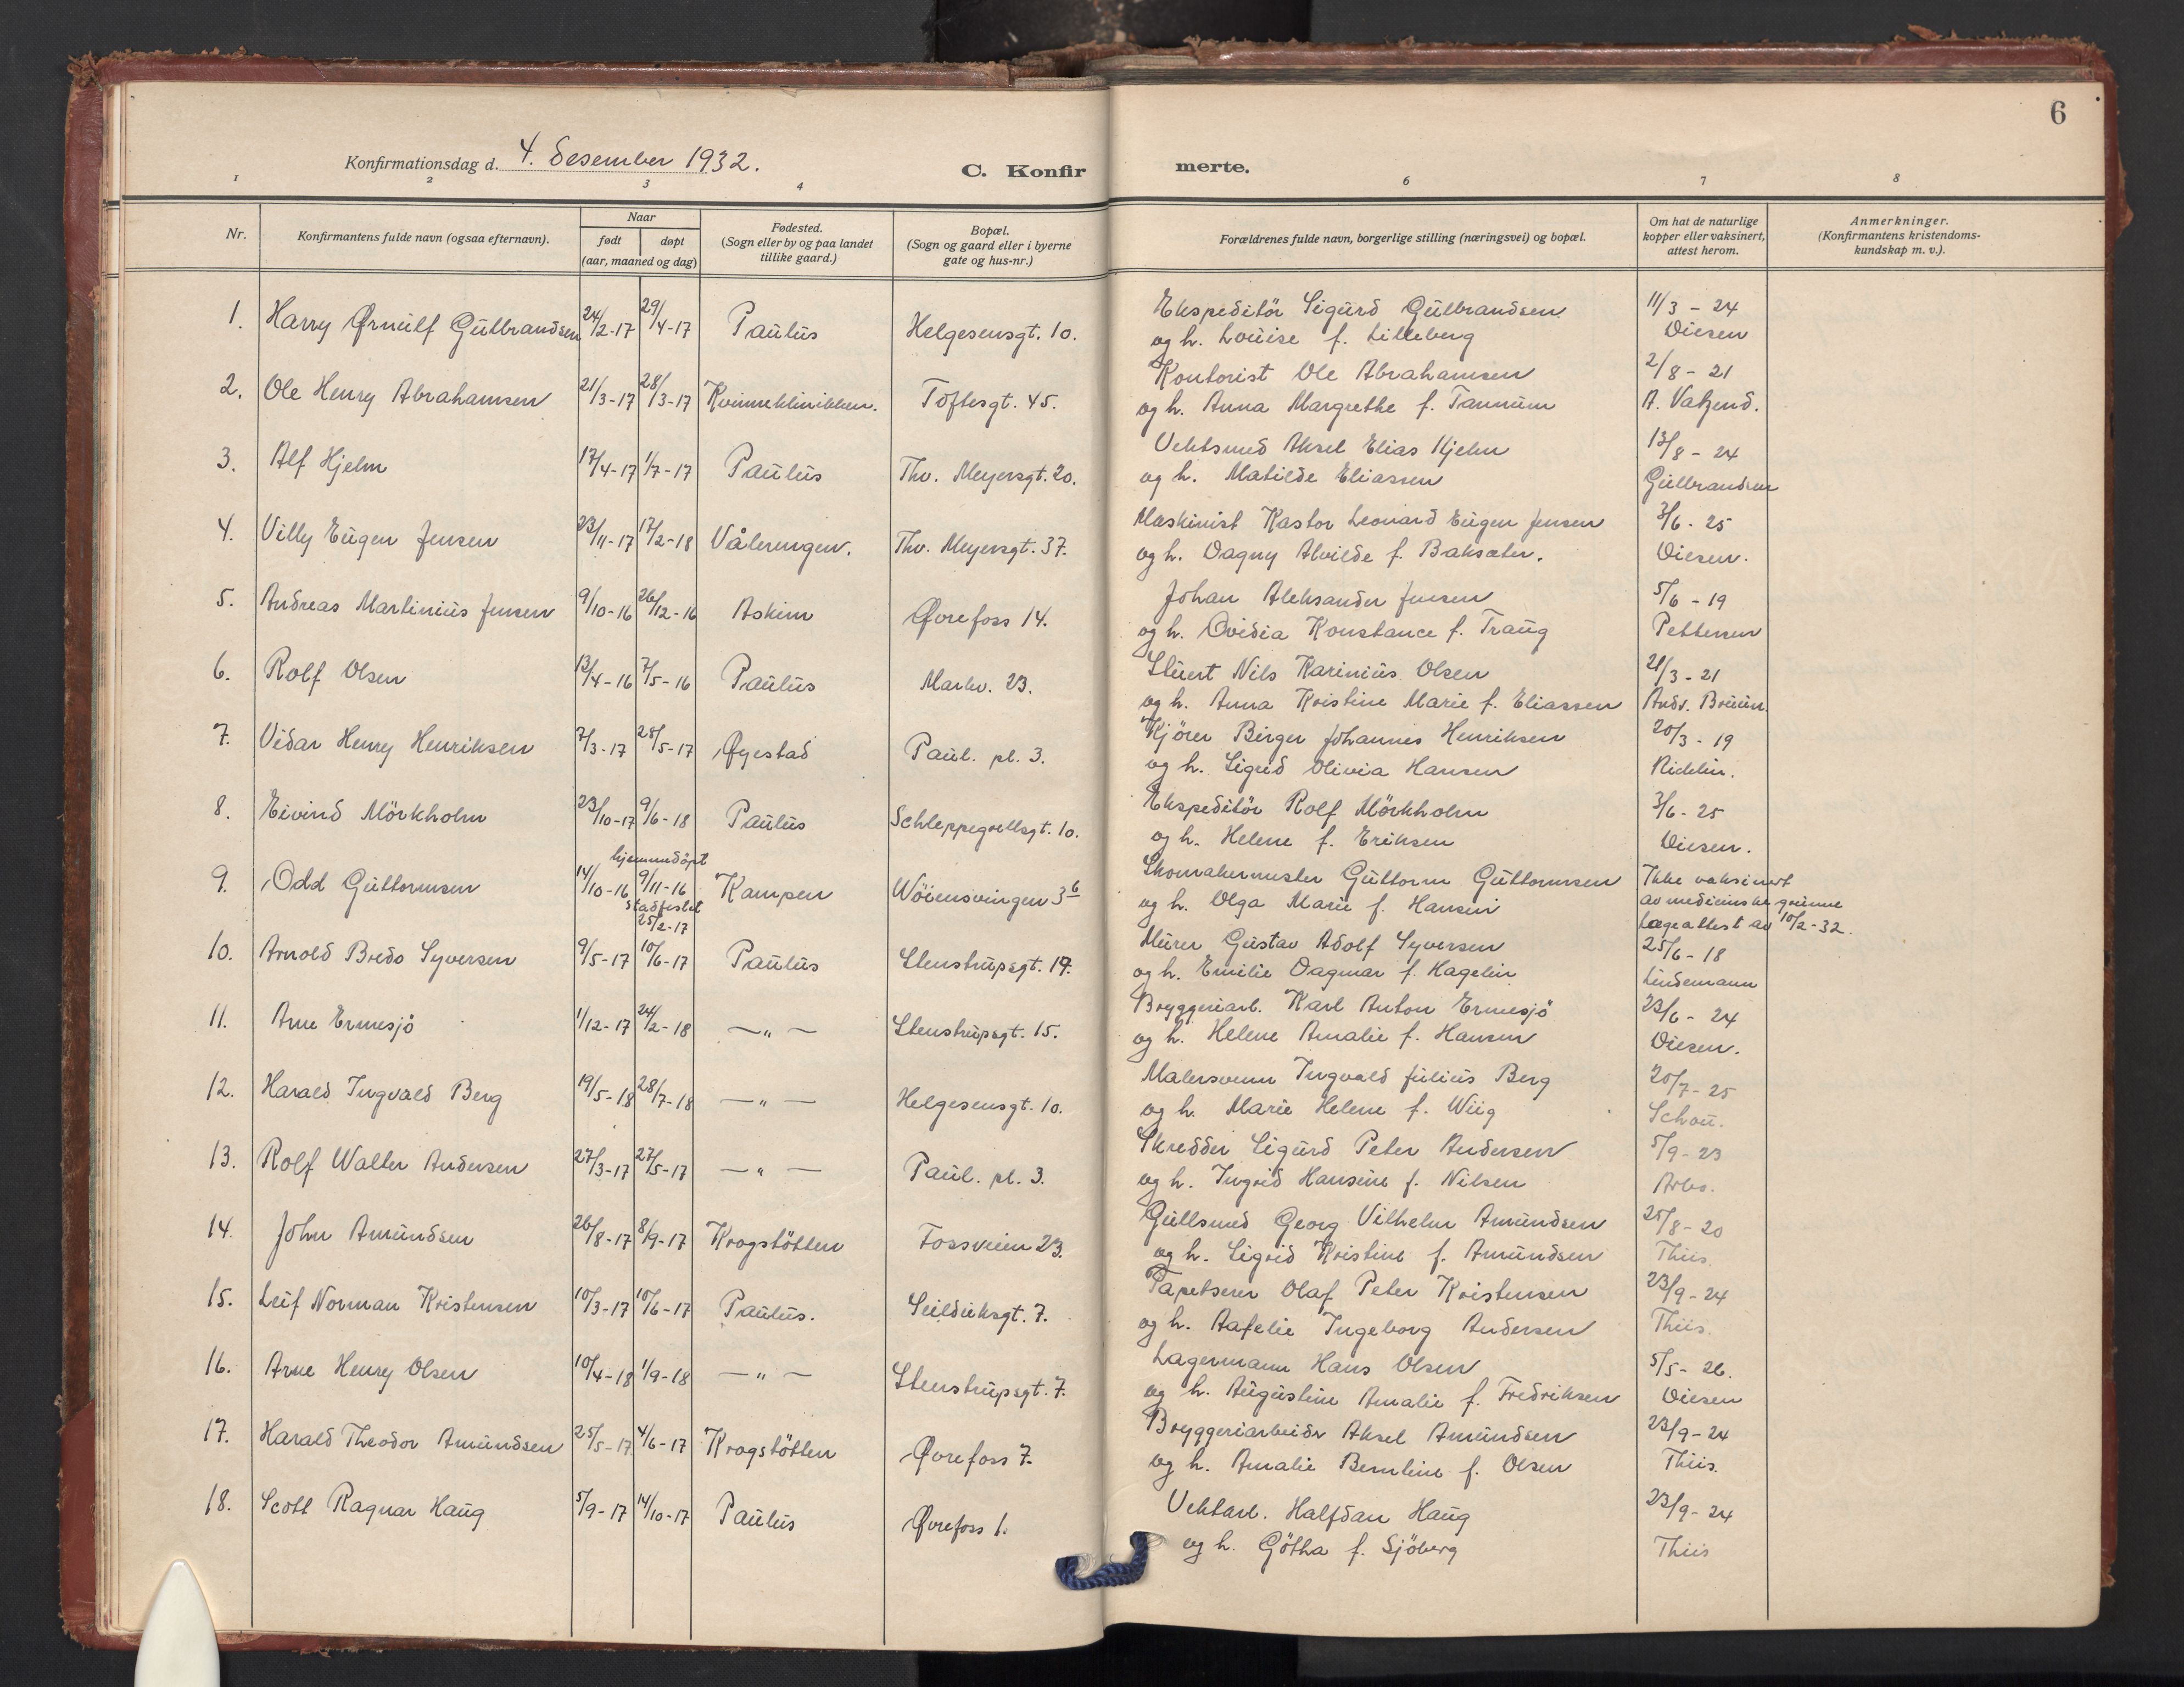 6
Konfirmationsdag d. 4. desember 1932.
C. Konfir merte.
1 2 3 4 6 7 8
Nr.
Konfirmantens fulde navn (ogsaa efternavn).
Naar
født døpt
(aar, maaned og dag)
Fødested.
(Sogn eller by og paa landet
tillike gaard.)
Bopæl.
(Sogn og gaard eller i byerne
gate og hus-nr.)
Forældrenes fulde navn, borgerlige stilling (næringsvei) og bopæl.
Om hat de naturlige
kopper eller vaksinert,
attest herom.
Anmerkninger.
(Konfirmantens kristendoms-
kundskap m. v.).
1. Harry Ørnulf Gulbrandsen 24/2-17 29/4-17 Paulus Helgesensgt. 10. Ekspeditör Sigurd Gulbrandsen 11/3 - 24
og h. Louise f. Lilleberg Diesen
2. Ole Henry Abrahamsen 21/3-17 28/3-17 Kvinneklinikken. Toftesgt. 45. Kontorist Ole Abrahamsen 2/8 - 21
og h. Anna Margrethe f. Tannum A.
3. Alf Hjelm 17/4-17 1/7-17 Paulus Thv. Meyersgt. 20. Vektsmed Aksel Elias Hjelm 13/8 - 24
og h. Matilde Eliassen Gulbrandsen
4. Villy Eugen Jensen 23/11-17 17/2-18 Våleringen. Thv. Meyersgt. 37. Maskinist Kastor Leonard Eugen Jensen 3/6 - 25
og h. Dagny Alvilde f. Baksæter. Diesen.
5. Andreas Martinius Jensen 9/10-16 26/12-16 Askim Øvrefoss 14. Johan Aleksander Jensen 5/6 - 19
og h. Ovidia Konstance f. Traug Pettersen
6. Rolf Olsen 13/4-16 7/5-16 Paulus Markv. 23. Stuert Nils Karinius Olsen 21/3 - 21
og h. Anna Kristine Marie f. Eliassen Andr. Bruun.
7. Vidar Henry Henriksen 7/3-17 28/5-17 Øyestad Paul. pl. 3. Kjörer Birger Johannes Henriksen 20/3 - 19
og h. Sigrid Olivia Hansen
8. Eivind Mörkholm 23/10-17 9/6-18 Paulus Schleppegrellsgt. 10. Ekspeditör Rolf Mörkholm 3/6 - 25
og h. Helene f. Eriksen Diesen.
hjemmedöpt
9. Odd Guttormsen 14/10-16 9/11-16 Kampen Wöiensvingen 3b Skomakermester Guttorm Guttormsen Ikke vaksinert
stadfestet og h. Olga Marie f. Hansen av medicinske grunne
25/2-17 Lægeattest av 10/2-32.
10. Arnold Bredo Syversen 9/5-17 10/6-17 Paulus Stenstrupsgt. 19. Murer Gustav Adolf Syversen 25/6 - 18
og h. Emilie Dagmar f. Hagelin Lindemann
11. Arne Ermesjö 1/12-17 24/2-18 — " — Stenstrupsgt. 15. Bryggeriarb. Karl Anton Ermesjö 23/6 - 24
og h. Helene Amalie f. Hansen Diesen.
12. Harald Ingvald Berg 19/5-18 28/7-18 — " — Helgesensgt. 10. Malersvenn Ingvald Julius Berg 20/7 - 25
og h. Marie Helene f. Wiig Schou.
13. Rolf Walter Andersen 27/3-17 27/5-17 — " — Paul. pl. 3. Skredder Sigurd Peter Andersen 5/9 - 23
og h. Ingrid Hansine f. Nilsen Arbo.
14. John Amundsen 26/8-17 8/9-17 Krogstötten Fossveien 23. Gullsmed Georg Vilhelm Amundsen 25/8 - 20
og h. Sigrid Kristine f. Amundsen Thiis.
15. Leif Norman Kristensen 10/3-17 10/6-17 Paulus. Seilduksgt. 7. Tapetserer Olaf Peter Kristensen 23/9 - 24
og h. Aafelie Ingeborg Andersen Thiis.
16. Arne Henry Olsen 10/4-18 1/9-18 — " — Stenstrupsgt. 7. Lagermann Hans Olsen 5/5 - 26.
og h. Augustine Amalie f. Fredriksen Diesen
17. Harald Theodor Amundsen 25/5-17 4/6-17 Krogstötten Øvrefoss 7. Bryggeriarbeider Aksel Amundsen 23/9 - 24
og h. Amalie Berntine f. Olsen Thiis.
18. Scott Ragnar Haug 5/9-17 14/10-17 Paulus Øvrefoss 1. Vektarb. Halfdan Haug 23/9 - 24
og h. Götha f. Sjöberg Thiis